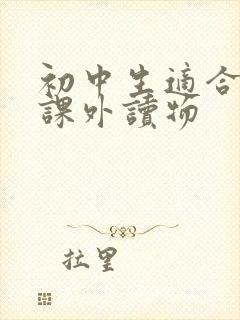 初中生適合
課外讀物
拉里